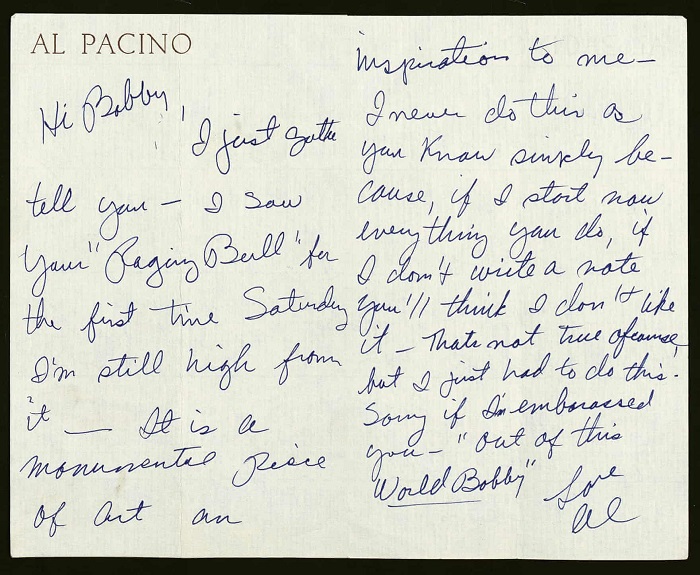 AL PACINO
Hi Bobby,
I just gotta
tell you — I saw
your "Raging Bull" for
the first time Saturday
I'm still high from
it — It is a
monumental piece
of art an
inspiration to me —
I never do this as
you know simply be-
cause, if I start now
everything you do, if
I don't write a note
you'll think I don't like
it — Thats not true ofcourse,
but I just had to do this.
Sorry if I'm embarassed
you — "out of this
World Bobby"
Love
Al